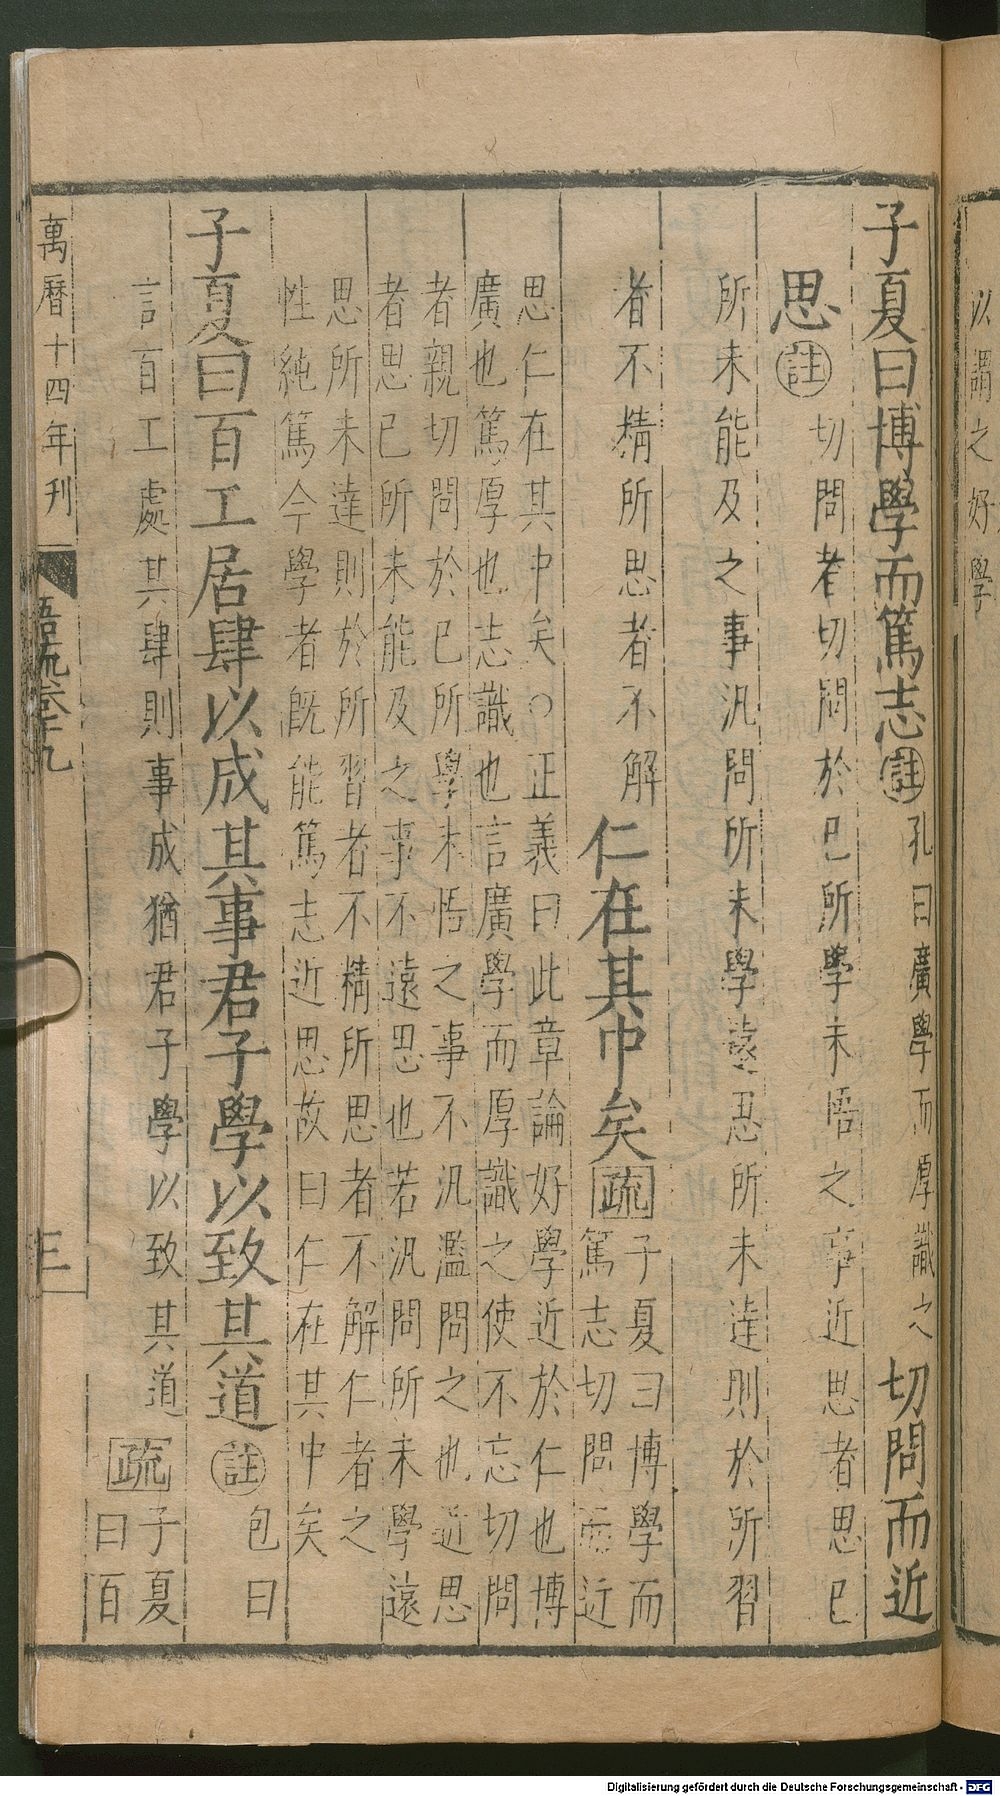 以謂之好學
子夏曰博學而篤志註孔曰廣學而厚識之切問而近
思註切問者切問於已所學未悟之事近思者思已
所未能及之事汎問所未學遠思所未達則於所習
者不精所思者不解仁在其中矣疏子夏曰博學而
篤志切問而近
思仁在其中矣○正義曰此章論好學近於仁也博
廣也篤厚也志識也言廣學而厚識之使不忘切問
者親切問於已所學未悟之事不汎濫問之也近思
者思已所未能及之事不遠思也若汎問所未學遠
思所未達則於所習者不精所思者不解仁者之
性純篤今學者既能篤志近思故曰仁在其中矣
子夏曰百工居肆以成其事君子學以致其道註包曰
言百工處其肆則事成猶君子學以致其道疏子夏
曰百
萬曆十四年刊
語疏卷十九
三
Digitalisierung gefördert durch die Deutsche Forschungsgemeinschaft - DFG